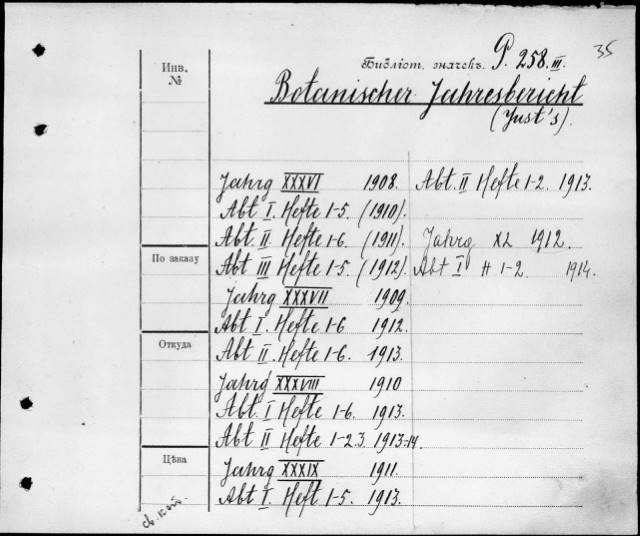 35
Библіот. значекъ. P. 258. III.
Botanischer Jahresbericht
(Just's).
Инв.
№
По заказу
Откуда
Цѣна
Jahrg XXXVI 1908.
Abt I. Hefte 1-5. (1910).
Abt. II. Hefte 1-6. (1911).
Abt III Hefte 1-5. (1912).
Jahrg XXXVII 1909.
Abt I. Hefte 1-6 1912.
Abt II. Hefte 1-6. 1913.
Jahrg XXXVIII 1910
Abt. I Hefte 1-6. 1913.
Abt. II Hefte 1-2.3. 1913-14.
Jahrg XXXIX 1911.
Abt I. Heft 1-5. 1913.
Abt. II Hefte 1-2. 1913.
Jahrg XL 1912.
Abt I H 1-2. 1914.